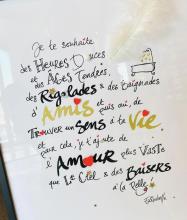 Je te souhaite
des Heures Douces
et des Ages Tendres,
des Rigolades & des Baignades
d'Amis et puis oui, de
Trouver un Sens à ta Vie.
et pour cela, je t'ajoute de
l'Amour plus Vaste
que Le Ciel & des Baisers
à la Pelle.